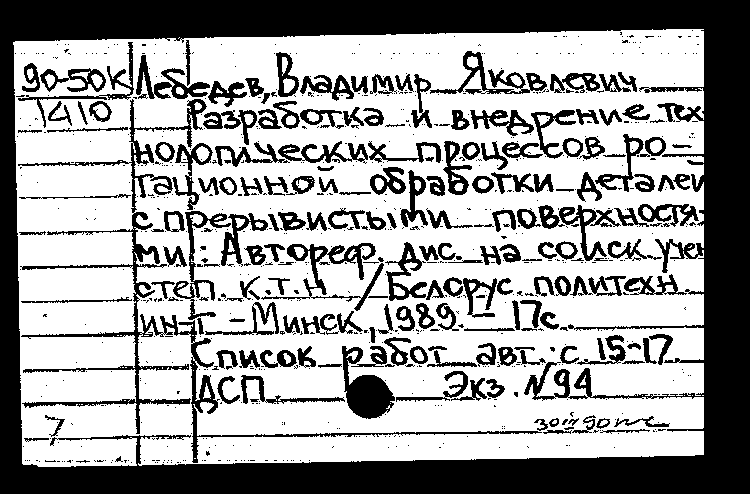 90-50К Лебедев, Владимир Яковлевич
1410 Разработка и внедрение тех-
нологических процессов ро-
тационной обработки деталей
с прерывистыми поверхностя-
ми : Автореф. дис. на соиск учен
степ. к.т.н / Белорус. политехн.
ин-т – Минск, 1989. – 17с.
Список работ авт.: с. 15-17.
ДСП Экз. №94
7